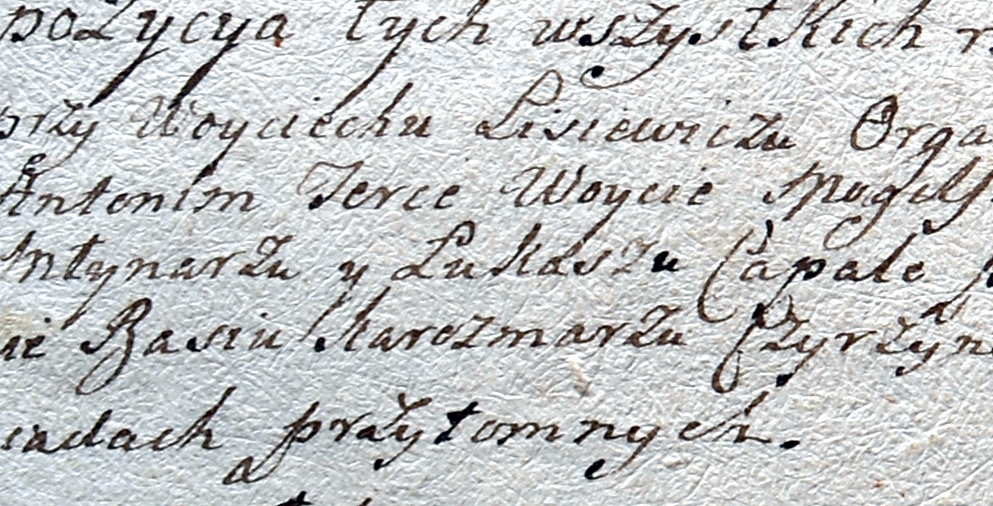 pożycya tych wszystkich
przy Woyciechu Lisiewiczu Orga
Antonim Jerce Woycie
Młynarzu y Łukaszu Capale
ie Basiu Karczmarzu Czyrżyn
iadach przytomnych.